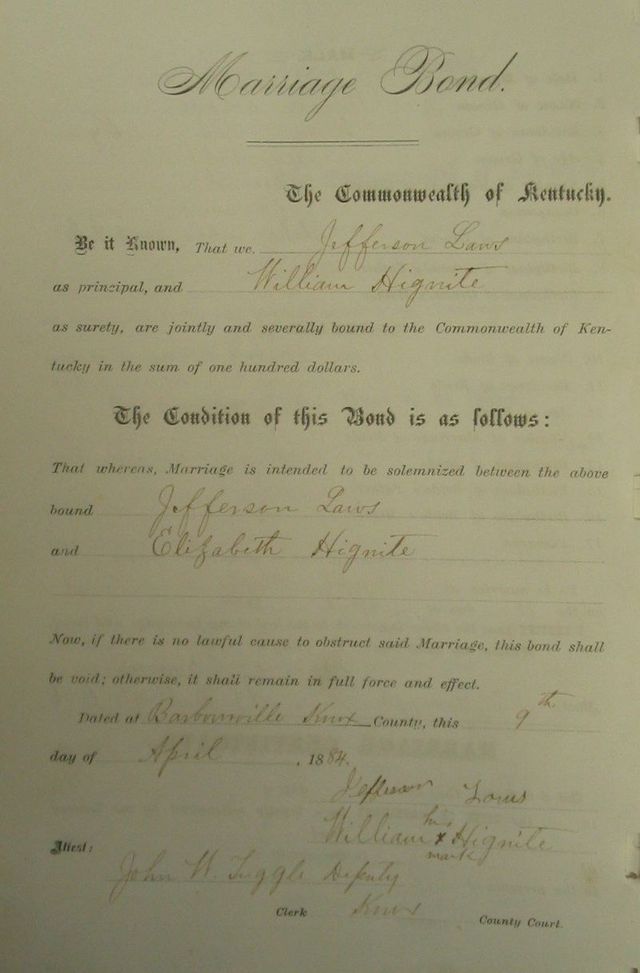 Marriage Bond.
The Commonwealth of Kentucky.
Be it Known, That we. Jefferson Laws
as principal, and William Hignite
as surety, are jointly and severally bound to the Commonwealth of Ken-
tucky in the sum of one hundred dollars.
The Condition of this Bond is as follows:
That whereas, Marriage is intended to be solemnized between the above
bound Jefferson Laws
and Elizabeth Hignite
Now, if there is no lawful cause to obstruct said Marriage, this bond shall
be void; otherwise, it shall remain in full force and effect.
Dated at Barbourville Knox County, this 9th
day of April, 1884.
Jefferson Laws
William his x mark Hignite
Attest:
John W. Tuggle Deputy
Clerk Knox County Court.